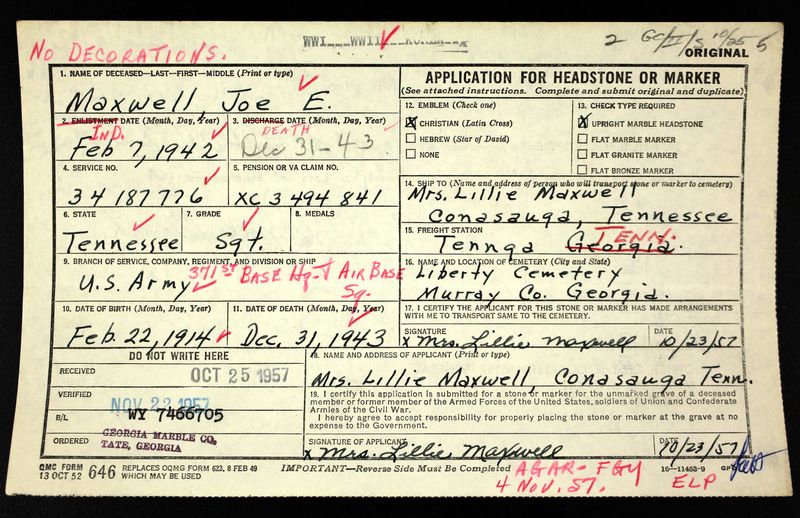 WWI WWII KOREA
2 GC/II/S 10/25 5
NO DECORATIONS.
ORIGINAL
1. NAME OF DECEASED—LAST—FIRST—MIDDLE (Print or type)
Maxwell, Joe E.
2. ENLISTMENT DATE (Month, Day, Year)
IND.
Feb 7, 1942
3. DISCHARGE DATE (Month, Day, Year)
DEATH
Dec 31-43
4. SERVICE NO.
34 187 776
5. PENSION OR VA CLAIM NO.
XC 3 494 841
6. STATE
Tennessee
7. GRADE
Sgt.
8. MEDALS
9. BRANCH OF SERVICE, COMPANY, REGIMENT, AND DIVISION OR SHIP
U.S. Army 371ST BASE Hq. & AIR BASE
Sq.
10. DATE OF BIRTH (Month, Day, Year)
Feb. 22, 1914
11. DATE OF DEATH (Month, Day, Year)
Dec. 31, 1943
APPLICATION FOR HEADSTONE OR MARKER
(See attached instructions. Complete and submit original and duplicate)
12. EMBLEM (Check one)
X CHRISTIAN (Latin Cross)
HEBREW (Star of David)
NONE
13. CHECK TYPE REQUIRED
X UPRIGHT MARBLE HEADSTONE
FLAT MARBLE MARKER
FLAT GRANITE MARKER
FLAT BRONZE MARKER
14. SHIP TO (Name and address of person who will transport stone or marker to cemetery)
Mrs. Lillie Maxwell
Conasauga, Tennessee
15. FREIGHT STATION
TENN.
Tennga Georgia.
16. NAME AND LOCATION OF CEMETERY (City and State)
Liberty Cemetery
Murray Co. Georgia.
17. I CERTIFY THE APPLICANT FOR THIS STONE OR MARKER HAS MADE ARRANGEMENTS
WITH ME TO TRANSPORT SAME TO THE CEMETERY.
SIGNATURE
x Mrs. Lillie Maxwell
DATE
10/23/57
DO NOT WRITE HERE
RECEIVED
OCT 25 1957
VERIFIED
NOV 22 1957
B/L
WY 7466705
ORDERED
GEORGIA MARBLE CO.
TATE, GEORGIA
18. NAME AND ADDRESS OF APPLICANT (Print or type)
Mrs. Lillie Maxwell, Conasauga Tenn.
19. I certify this application is submitted for a stone or marker for the unmarked grave of a deceased
member or former member of the Armed Forces of the United States, soldiers of Union and Confederate
Armies of the Civil War.
I hereby agree to accept responsibility for properly placing the stone or marker at the grave at no
expense to the Government.
SIGNATURE OF APPLICANT
x Mrs. Lillie Maxwell
DATE
10/23/57
QMC FORM
13 OCT 52 646
REPLACES QMC FORM 623, 8 FEB 49
WHICH MAY BE USED
IMPORTANT—Reverse Side Must be Completed
16—11453-9 GPO
AGAR-FGY
4 NOV. 57.
ELP